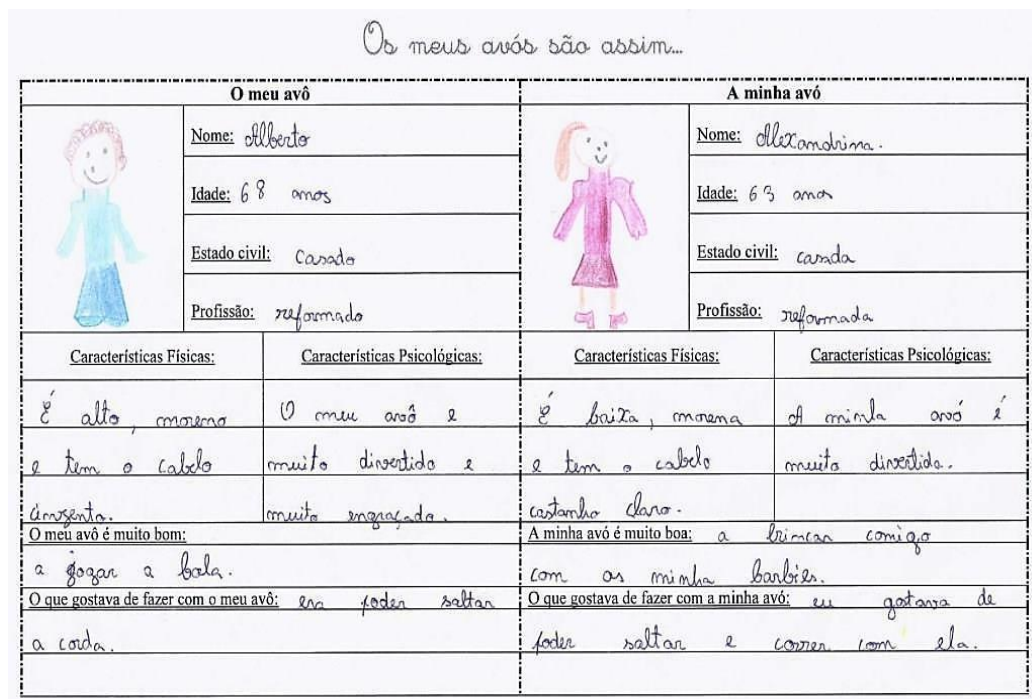 Os meus avós são assim...
O meu avô
Nome: Alberto
Idade: 68 anos
Estado civil: Casado
Profissão: reformado
Características Físicas:
É alto, moreno
e tem o cabelo
cinzento.
Características Psicológicas:
O meu avô e
muito divertido e
muito engraçado.
O meu avô é muito bom:
a jogar a bola.
O que gostava de fazer com o meu avô: era poder saltar
a corda.
A minha avó
Nome: Alexandrina.
Idade: 63 anos
Estado civil: casada
Profissão: reformada
Características Físicas:
É baixa, morena
e tem o cabelo
castanho claro.
Características Psicológicas:
A minha avó é
muito divertida.
A minha avó é muito boa: a brincar comigo
com as minha barbies.
O que gostava de fazer com a minha avó: eu gostava de
poder saltar e correr com ela.